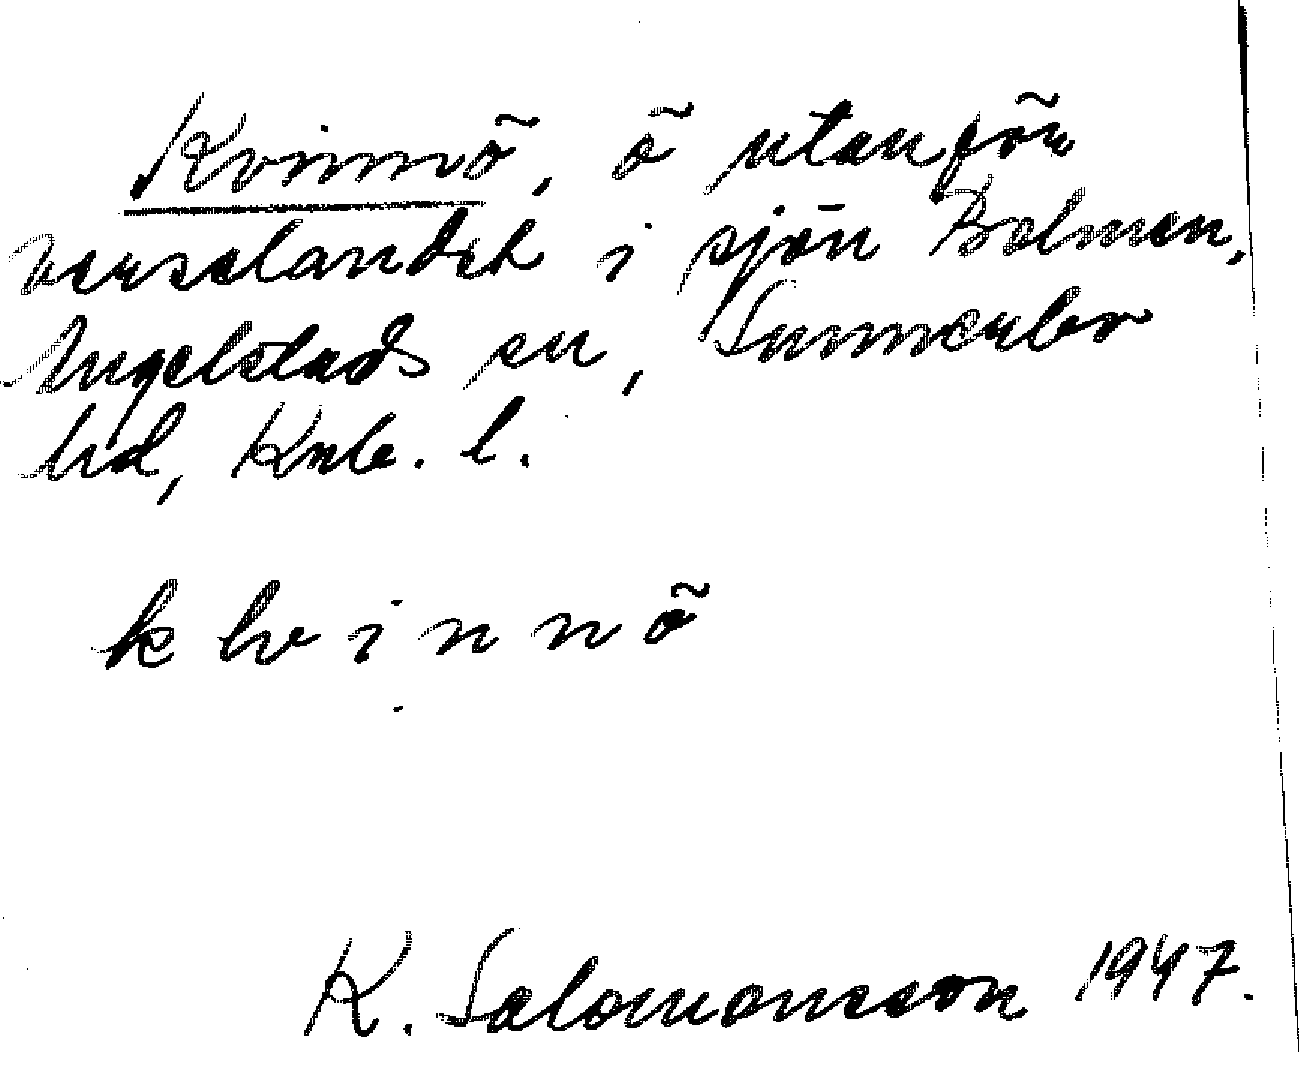 Kvinnö, ö utanför
i sjön Bolmen,
Angelstads sn, Sunnerbo
hd, l.
k v i n n ö
K. Salomonsson 1947.